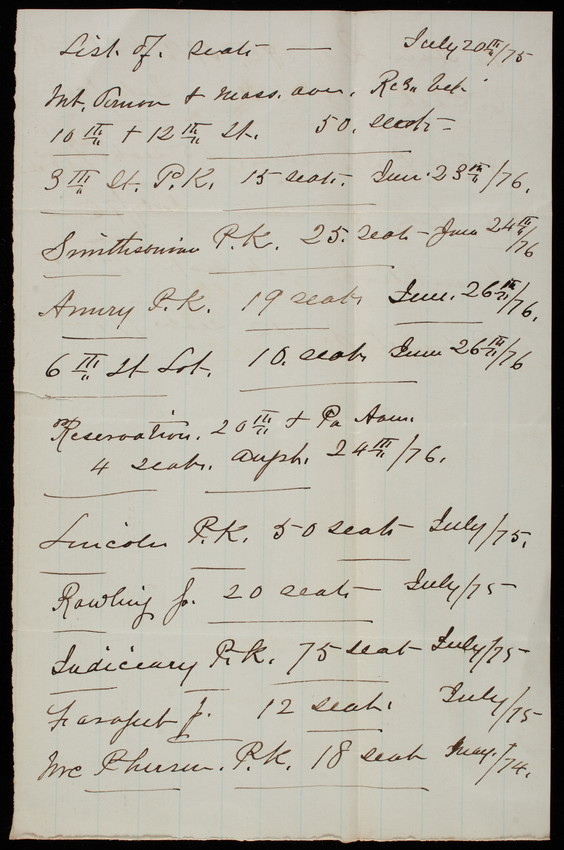 List. of. seats — July 20th/75
Mt. Vernon & Mass. aven. Res. bet.
10th + 12th St. 50. seats
3th St. P.K. 15 seats. Jun. 23th/76.
Smithsonian P.K. 25. seats Jun 24th/76
Amury P.K. 19 seats Jun. 26th/76.
6th St Lot. 10. seats Jun 26th/76
Reservation. 20th + Pa Aven.
4 seats. 24th/76.
Lincoln P.K. 50 seats July/75.
Rawling 20 seats July/75
Judiciary P.K. 75 seats July/75
Farafut 12 seats. July/75
Mc Pherson. P.K. 18 seats May./74.